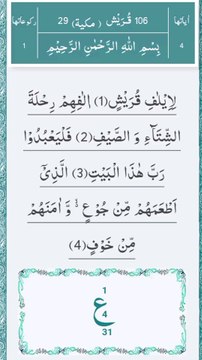 أياتها 106 قُرَيْشٍ (مكية) 29 ركوعاتها
4 بِسْمِ اللهِ الرَّحْمٰنِ الرَّحِيْمِ 1
لِاِيْلٰفِ قُرَيْشٍ(1) اٖلٰفِهِمْ رِحْلَةَ
الشِّتَآءِ وَ الصَّيْفِ(2) فَلْيَعْبُدُوْا
رَبَّ هٰذَا الْبَيْتِ(3) الَّذِيْۤ
اَطْعَمَهُمْ مِّنْ جُوْعٍ ۙ۬ وَّ اٰمَنَهُمْ
مِّنْ خَوْفٍ(4)
1
ع
4
31